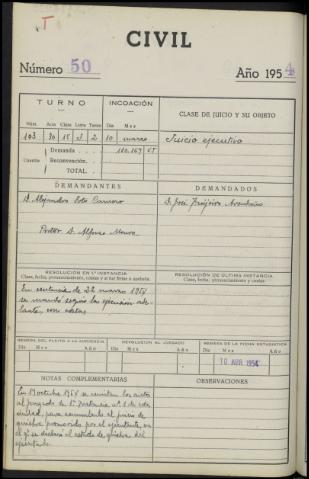 T
CIVIL
Número 50
Año 1954
TURNO
INCOACIÓN
CLASE DE JUICIO Y SU OBJETO
Núm. Año Clase Letra Turno Día Mes
103 10 marzo
Juicio ejecutivo
Demanda 180.167
Cuantía Reconvención.
TOTAL
DEMANDANTES
DEMANDADOS
D. Alejandro Soto
D. José
D. Alfonso
RESOLUCIÓN EN 1.ª INSTANCIA
Clase, fecha, pronunciamiento, costas y si fué firme o apelada.
RESOLUCIÓN DE ÚLTIMA INSTANCIA
Clase, fecha, pronunciamiento y costas.
En sentencia de 22 marzo 1954
se mandó seguir la ejecución ade-
lante, con costas
REMESA DEL PLEITO A LA AUDIENCIA
DEVOLUCIÓN AL JUZGADO
REMESA DE LA FICHA ESTADÍSTICA
Día Mes Año
Día Mes Año
Día Mes Año
10 ABR. 1954
NOTAS COMPLEMENTARIAS
OBSERVACIONES
En octubre 1954 se remiten los autos
al juzgado de 1ª Instancia nº 1 de esta
ciudad, para acumularlo al juicio de
quiebra promovido por el ejecutante, en
el q. se declaró el estado de quiebra del
ejecutado